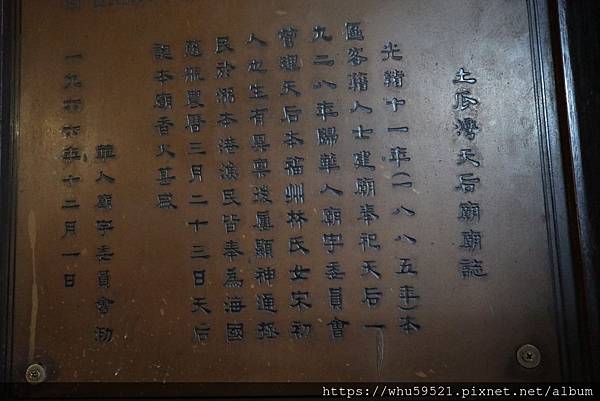 土瓜灣天后廟廟誌
光緒十一年(一八八五年)本
區客籍人士建廟奉祀天后一
九二八年歸華人廟宇委員會
管理天后本福州林氏女宋初
人也生有異稟後屢顯神通拯
民於溺本港漁民皆奉為海國
慈航農曆三月二十三日天后
誕本廟香火甚盛
華人廟宇委員會勒
一九六六年十二月一日
https://whu59521.pixnet.net/album